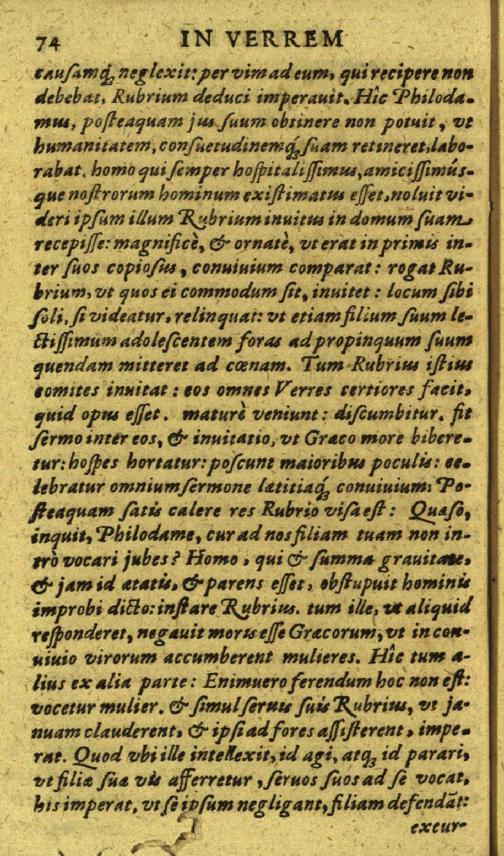 74 IN VERREM
cauſamq́; neglexit: per vim ad eum, qui recipere non
debebat, Rubrium deduci imperauit. Hîc Philoda-
mus, poſteaquam jus ſuum obtinere non potuit, vt
humanitatem, conſuetudinemq́; ſuam retineret, labo-
rabat. homo qui ſemper hoſpitaliſſimus, amiciſſimúſ-
que noſtrorum hominum exiſtimatus eſſet, noluit vi-
deri ipſum illum Rubrium inuitus in domum ſuam
recepiſſe: magnificè, & ornatè, vt erat in primis in-
ter ſuos copioſus, conuiuium comparat: rogat Ru-
brium, vt quos ei commodum ſit, inuitet: locum ſibi
ſoli, ſi videatur, relinquat: vt etiam filium ſuum le-
ctiſſimum adoleſcentem foras ad propinquum ſuum
quendam mitteret ad cœnam. Tum Rubrius iſtius
comites inuitat: eos omnes Verres certiores facit,
quid opus eſſet. maturè veniunt: diſcumbitur. fit
ſermo inter eos, & inuitatio, vt Græco more bibere-
tur: hoſpes hortatur: poſcunt maioribus poculis: ce-
lebratur omnium ſermone lætitiaq́; conuiuium: Po-
ſteaquam ſatis calere res Rubrio viſa eſt: Quæſo,
inquit, Philodame, cur ad nos filiam tuam non in-
trò vocari jubes? Homo, qui & ſumma grauitate,
& jam id ætatis, & parens eſſet, obſtupuit hominis
improbi dicto: inſtare Rubrius. tum ille, vt aliquid
reſponderet, negauit moris eſſe Græcorum, vt in con-
uiuio virorum accumberent mulieres. Hîc tum a-
lius ex alia parte: Enimuero ferendum hoc non eſt:
vocetur mulier. & ſimul ſeruis ſuis Rubrius, vt ja-
nuam clauderent, & ipſi ad fores aſſiſterent, impe-
rat. Quod vbi ille intellexit, id agi, atq́; id parari,
vt filiæ ſuæ vis afferretur, ſeruos ſuos ad ſe vocat,
his imperat, vt ſe ipſum negligant, filiam defendãt:
excur-